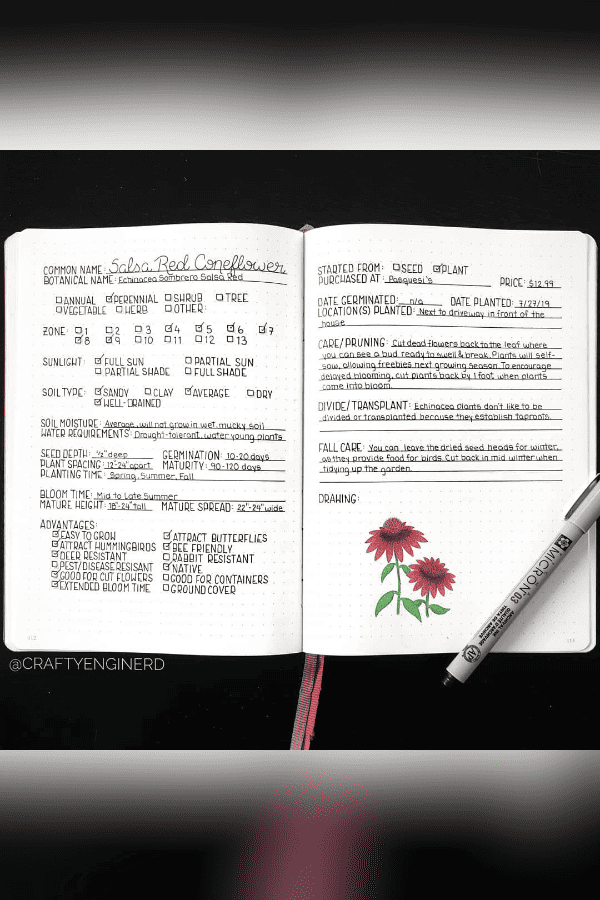 COMMON NAME: Salsa Red Coneflower
BOTANICAL NAME: Echinacea Sombrero Salsa Red
☐ANNUAL ☑PERENNIAL ☐SHRUB ☐TREE
☐VEGETABLE ☐HERB ☐OTHER:
ZONE: ☐1 ☐2 ☐3 ☑4 ☑5 ☑6 ☑7
☑8 ☑9 ☐10 ☐11 ☐12 ☐13
SUNLIGHT: ☑FULL SUN ☐PARTIAL SUN
☐PARTIAL SHADE ☐FULL SHADE
SOIL TYPE: ☑SANDY ☐CLAY ☑AVERAGE ☐DRY
☑WELL-DRAINED
SOIL MOISTURE: Average, will not grow in wet, mucky soil
WATER REQUIREMENTS: Drought-tolerant, water young plants
SEED DEPTH: ½" deep GERMINATION: 10-20 days
PLANT SPACING: 12"-24" apart MATURITY: 90-120 days
PLANTING TIME: Spring, Summer, Fall
BLOOM TIME: Mid to Late Summer
MATURE HEIGHT: 18"-24" tall MATURE SPREAD: 22"-24" wide
ADVANTAGES:
☑EASY TO GROW ☑ATTRACT BUTTERFLIES
☑ATTRACT HUMMINGBIRDS ☑BEE FRIENDLY
☑DEER RESISTANT ☐RABBIT RESISTANT
☐PEST/DISEASE RESISANT ☑NATIVE
☑GOOD FOR CUT FLOWERS ☐GOOD FOR CONTAINERS
☑EXTENDED BLOOM TIME ☐GROUND COVER
112
STARTED FROM: ☐SEED ☑PLANT
PURCHASED AT: Pasquesi's PRICE: $12.99
DATE GERMINATED: n/a DATE PLANTED: 7/27/19
LOCATION(S) PLANTED: Next to driveway in front of the
house
CARE/PRUNING: Cut dead flowers back to the leaf where
you can see a bud ready to swell & break. Plants will self-
sow, allowing freebies next growing season. To encourage
delayed blooming, cut plants back by 1 foot when plants
come into bloom.
DIVIDE/TRANSPLANT: Echinacea plants don't like to be
divided or transplanted because they establish taproots.
FALL CARE: You can leave the dried seed heads for winter,
as they provide food for birds. Cut back in mid winter when
tidying up the garden.
DRAWING:
MICRON 03
@CRAFTYENGINERD